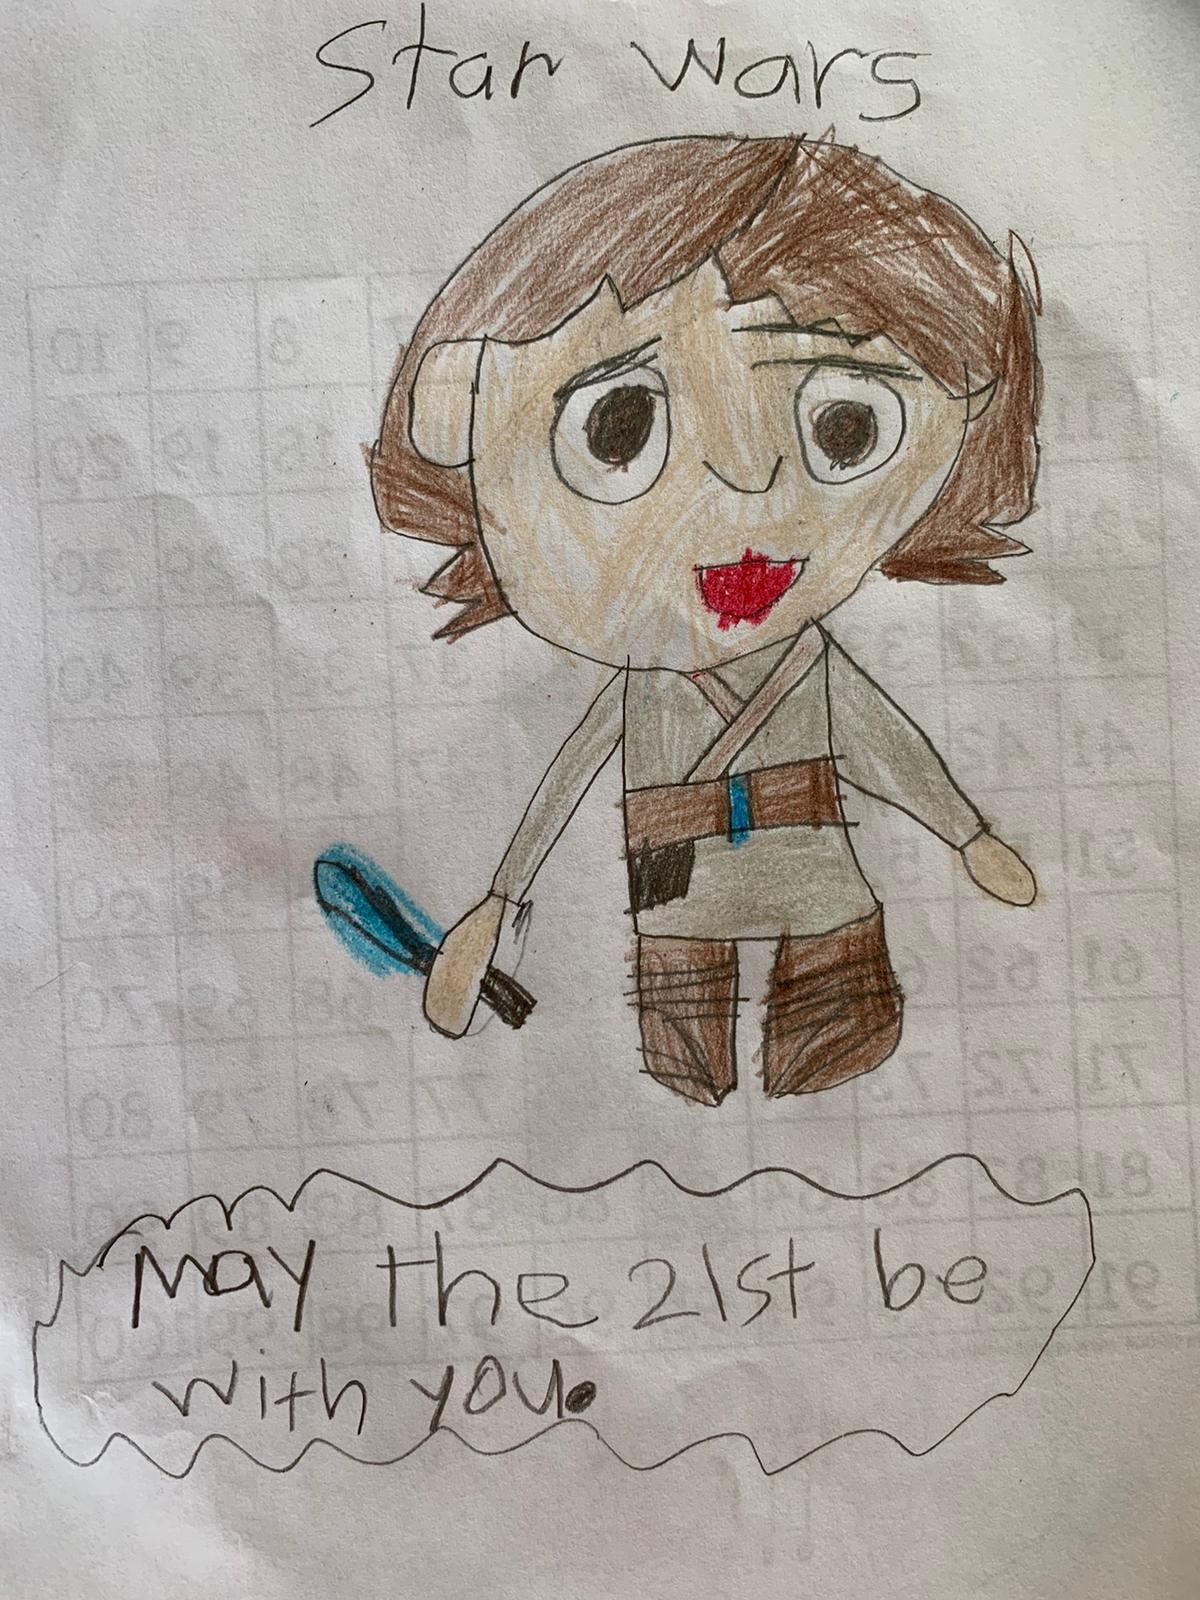 Star Wars
May the 21st be
with you.